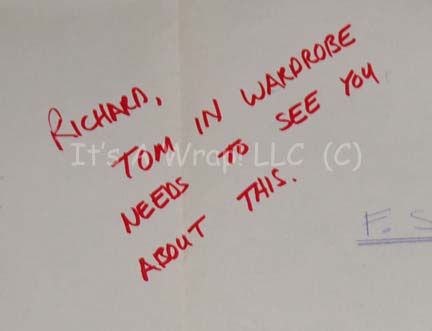 RICHARD,
TOM IN WARDROBE
NEEDS TO SEE YOU
ABOUT THIS.
It's A Wrap! LLC (C)
F. S